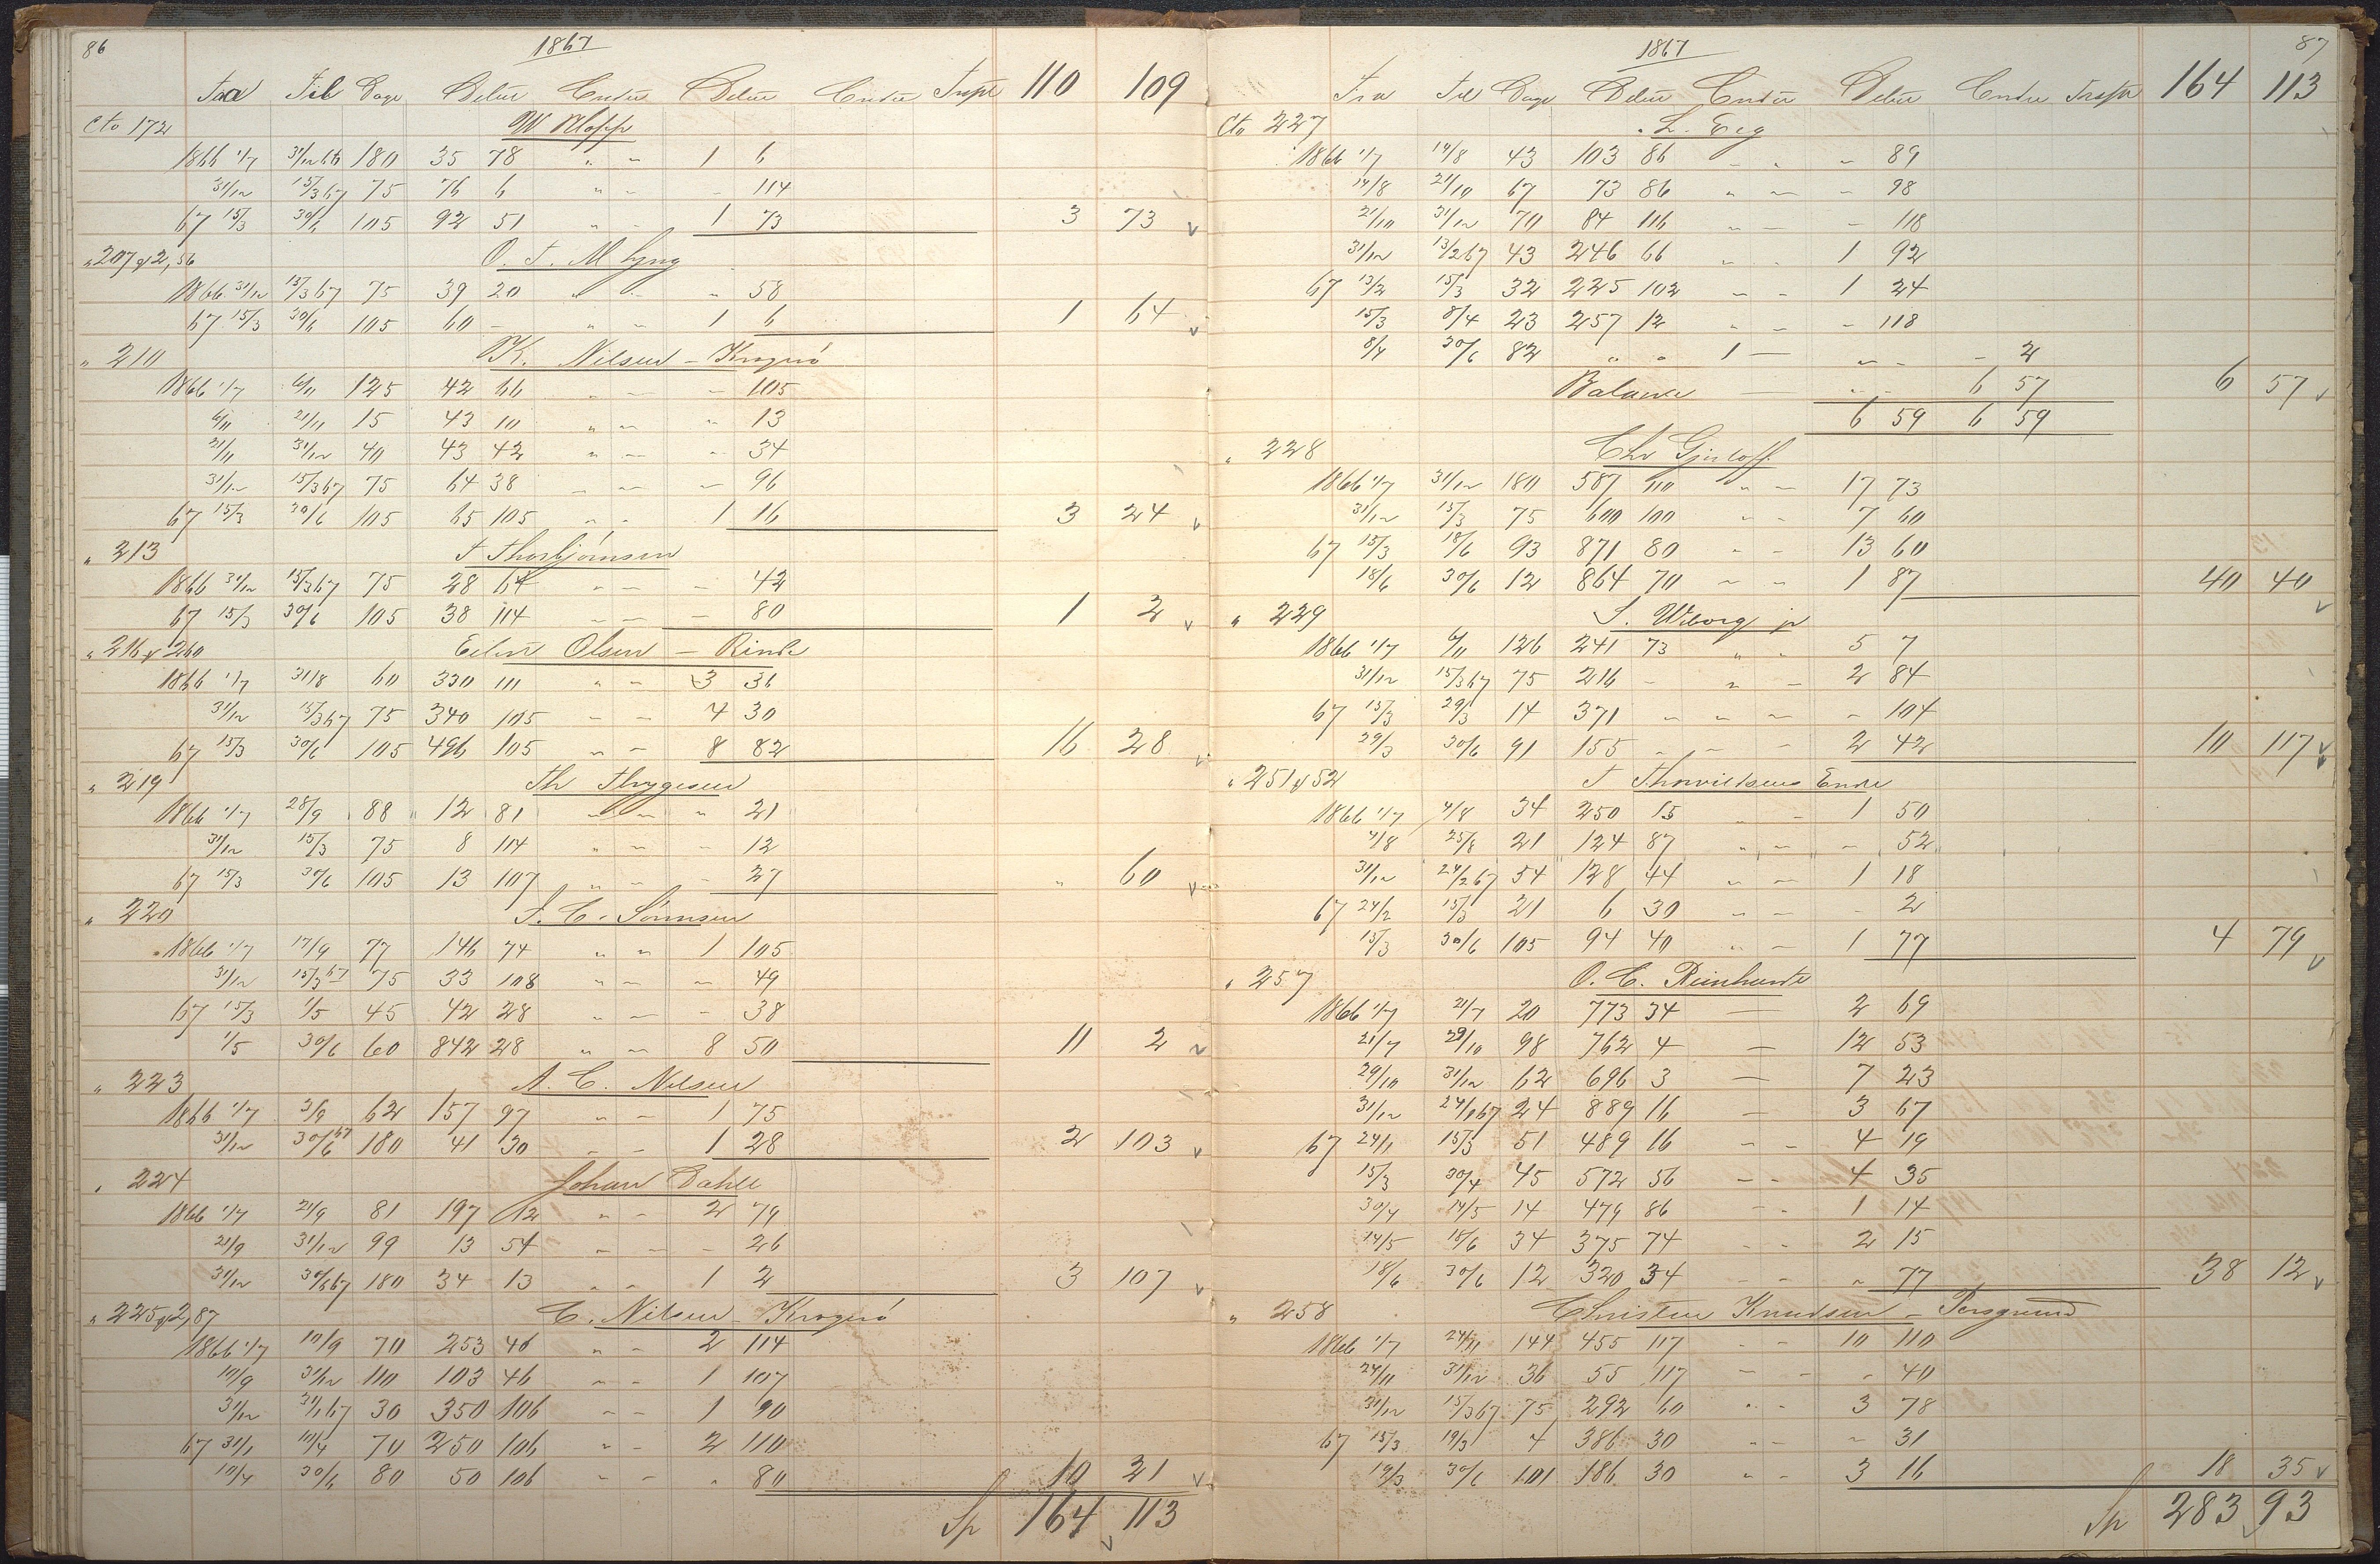 86
1867
Fra Til Dage Debet Credit Debet Credit Trspt 110 109
Cto 172 W Klopp
1866 1/7 31/12 66 180 35 78 " " 1 6
31/12 15/3 67 75 76 6 " " - 114
67 15/3 30/6 105 92 51 " " 1 73 3 73
" 207 & 2,56 O. T. M Lyng
1866 31/12 15/3 67 75 39 20 " " " 58
67 15/3 30/6 105 60 - " " 1 6 1 64
" 210 K. Nilsen - Kragerö
1866 1/7 6/11 125 42 66 " - - 105
6/11 21/11 15 43 10 " - " 13
21/11 31/12 40 43 42 " - - 34
31/12 15/3 67 75 64 38 - - - 96
67 15/3 30/6 105 65 105 " " 1 16 3 24
" 213 T Thorbjörnsen
1866 31/12 15/3 67 75 28 64 " - - 42
67 15/3 30/6 105 38 114 - - - 80 1 2
" 216 & 260 Olsen - Rinde
1866 1/7 31/8 60 330 111 " " 3 36
31/12 15/3 67 75 340 105 - - 4 30
67 15/3 30/6 105 496 105 " - 8 82 16 28
" 219 Th Thygesen
1866 1/7 28/9 88 12 81 - - " 21
31/12 15/3 75 8 114 " - - 12
67 15/3 30/6 105 13 107 " " - 27 " 60
" 220 J. C. Sörensen
1866 1/7 17/9 77 146 74 " " 1 105
31/12 15/3 67 75 33 108 " - - 49
67 15/3 1/5 45 42 28 " - - 38
1/5 30/6 60 842 28 " - 8 50 11 2
" 223 A. C. Nilsen
1866 1/7 3/9 62 157 97 " - 1 75
31/12 30/6 67 180 41 30 - - 1 28 2 103
" 224 Johan Dahll
1866 1/7 21/9 81 197 12 " - 2 79
21/9 31/12 99 13 54 - - - 26
31/12 30/6 67 180 34 13 " - 1 2 3 107
" 225 & 2,87 C. Nilsen - Kragerö
1866 1/7 10/9 70 253 46 " - 2 114
10/9 31/12 110 103 46 - - 1 107
31/12 31/1 67 30 350 106 - - 1 90
67 31/1 10/4 70 250 106 " - 2 110
10/4 30/6 80 50 106 - - " 80 10 21
Sp 164 113
87
1867
Fra Til Dage Debet Credit Debet Credit Trspt 164 113
Cto 227
1866 1/7 14/8 43 103 86 - " - 89
14/8 21/10 67 73 86 " - - 98
21/10 31/12 70 84 116 " - - 118
31/12 13/2 67 43 246 66 - " 1 92
67 13/2 15/3 32 225 102 - - 1 24
15/3 8/4 23 257 12 " - - 118
8/4 30/6 82 " " 1 - - - - 2
Balance - " - 6 57 6 57
6 59 6 59
" 228 Chr Gjerløff
1866 1/7 31/12 180 587 110 " - 17 73
31/12 15/3 75 600 100 " - 7 60
67 15/3 18/6 93 871 80 - - 13 60
18/6 30/6 12 864 70 - - 1 87 40 40
" 229 S. Wiborg jr
1866 1/7 6/11 126 241 73 " " 5 7
31/12 15/3 67 75 216 - " - 2 84
67 15/3 29/3 14 371 - - - - 104
29/3 30/6 91 155 - - - 2 42 10 117
" 251 & 52 T Enke
1866 1/7 4/8 34 250 15 " - 1 50
4/8 25/8 21 124 87 " - - 52
31/12 24/2 67 54 128 44 " - 1 18
67 24/2 15/3 21 6 30 - - - 2
15/3 30/6 105 94 40 " - 1 77 4 79
" 257 O. C. Reinhardt
1866 1/7 21/7 20 773 34 - 2 69
21/7 29/10 98 762 4 - 12 53
29/10 31/12 62 696 3 - 7 23
31/12 24/1 67 24 889 16 - 3 67
67 24/1 15/3 51 489 16 - - 4 19
15/3 30/4 45 572 56 - - 4 35
30/4 14/5 14 479 86 - - 1 14
14/5 18/6 34 375 74 " - 2 15
18/6 30/6 12 320 34 - - " 77 38 12
" 258 Christen Knudsen - Porsgrund
1866 1/7 24/11 144 455 117 - 10 110
24/11 31/12 36 55 117 - - - 40
31/12 15/3 67 75 292 60 " - 3 78
67 15/3 19/3 4 386 30 - - - 31
19/3 30/6 101 186 30 " - 3 16 18 35
Sp 283 93